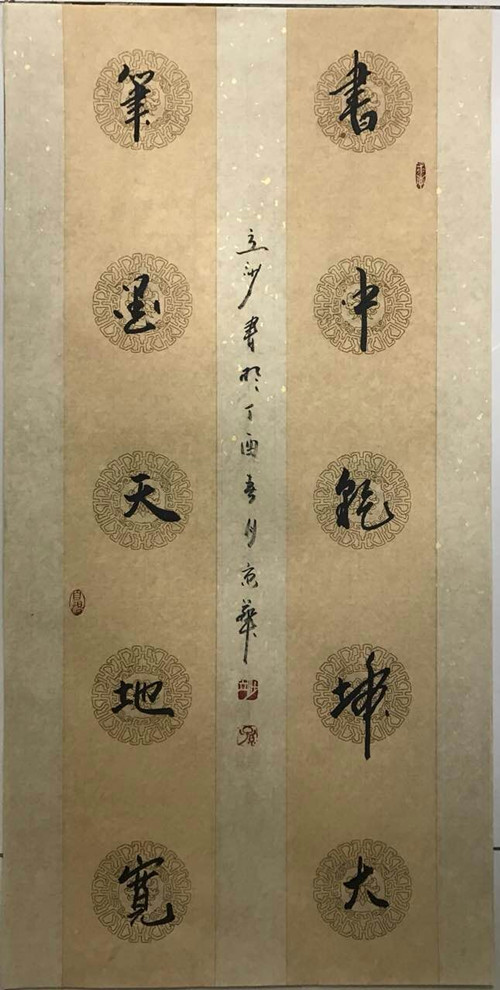 書中乾坤大
立沙書於丁酉春月京華
筆墨天地寬